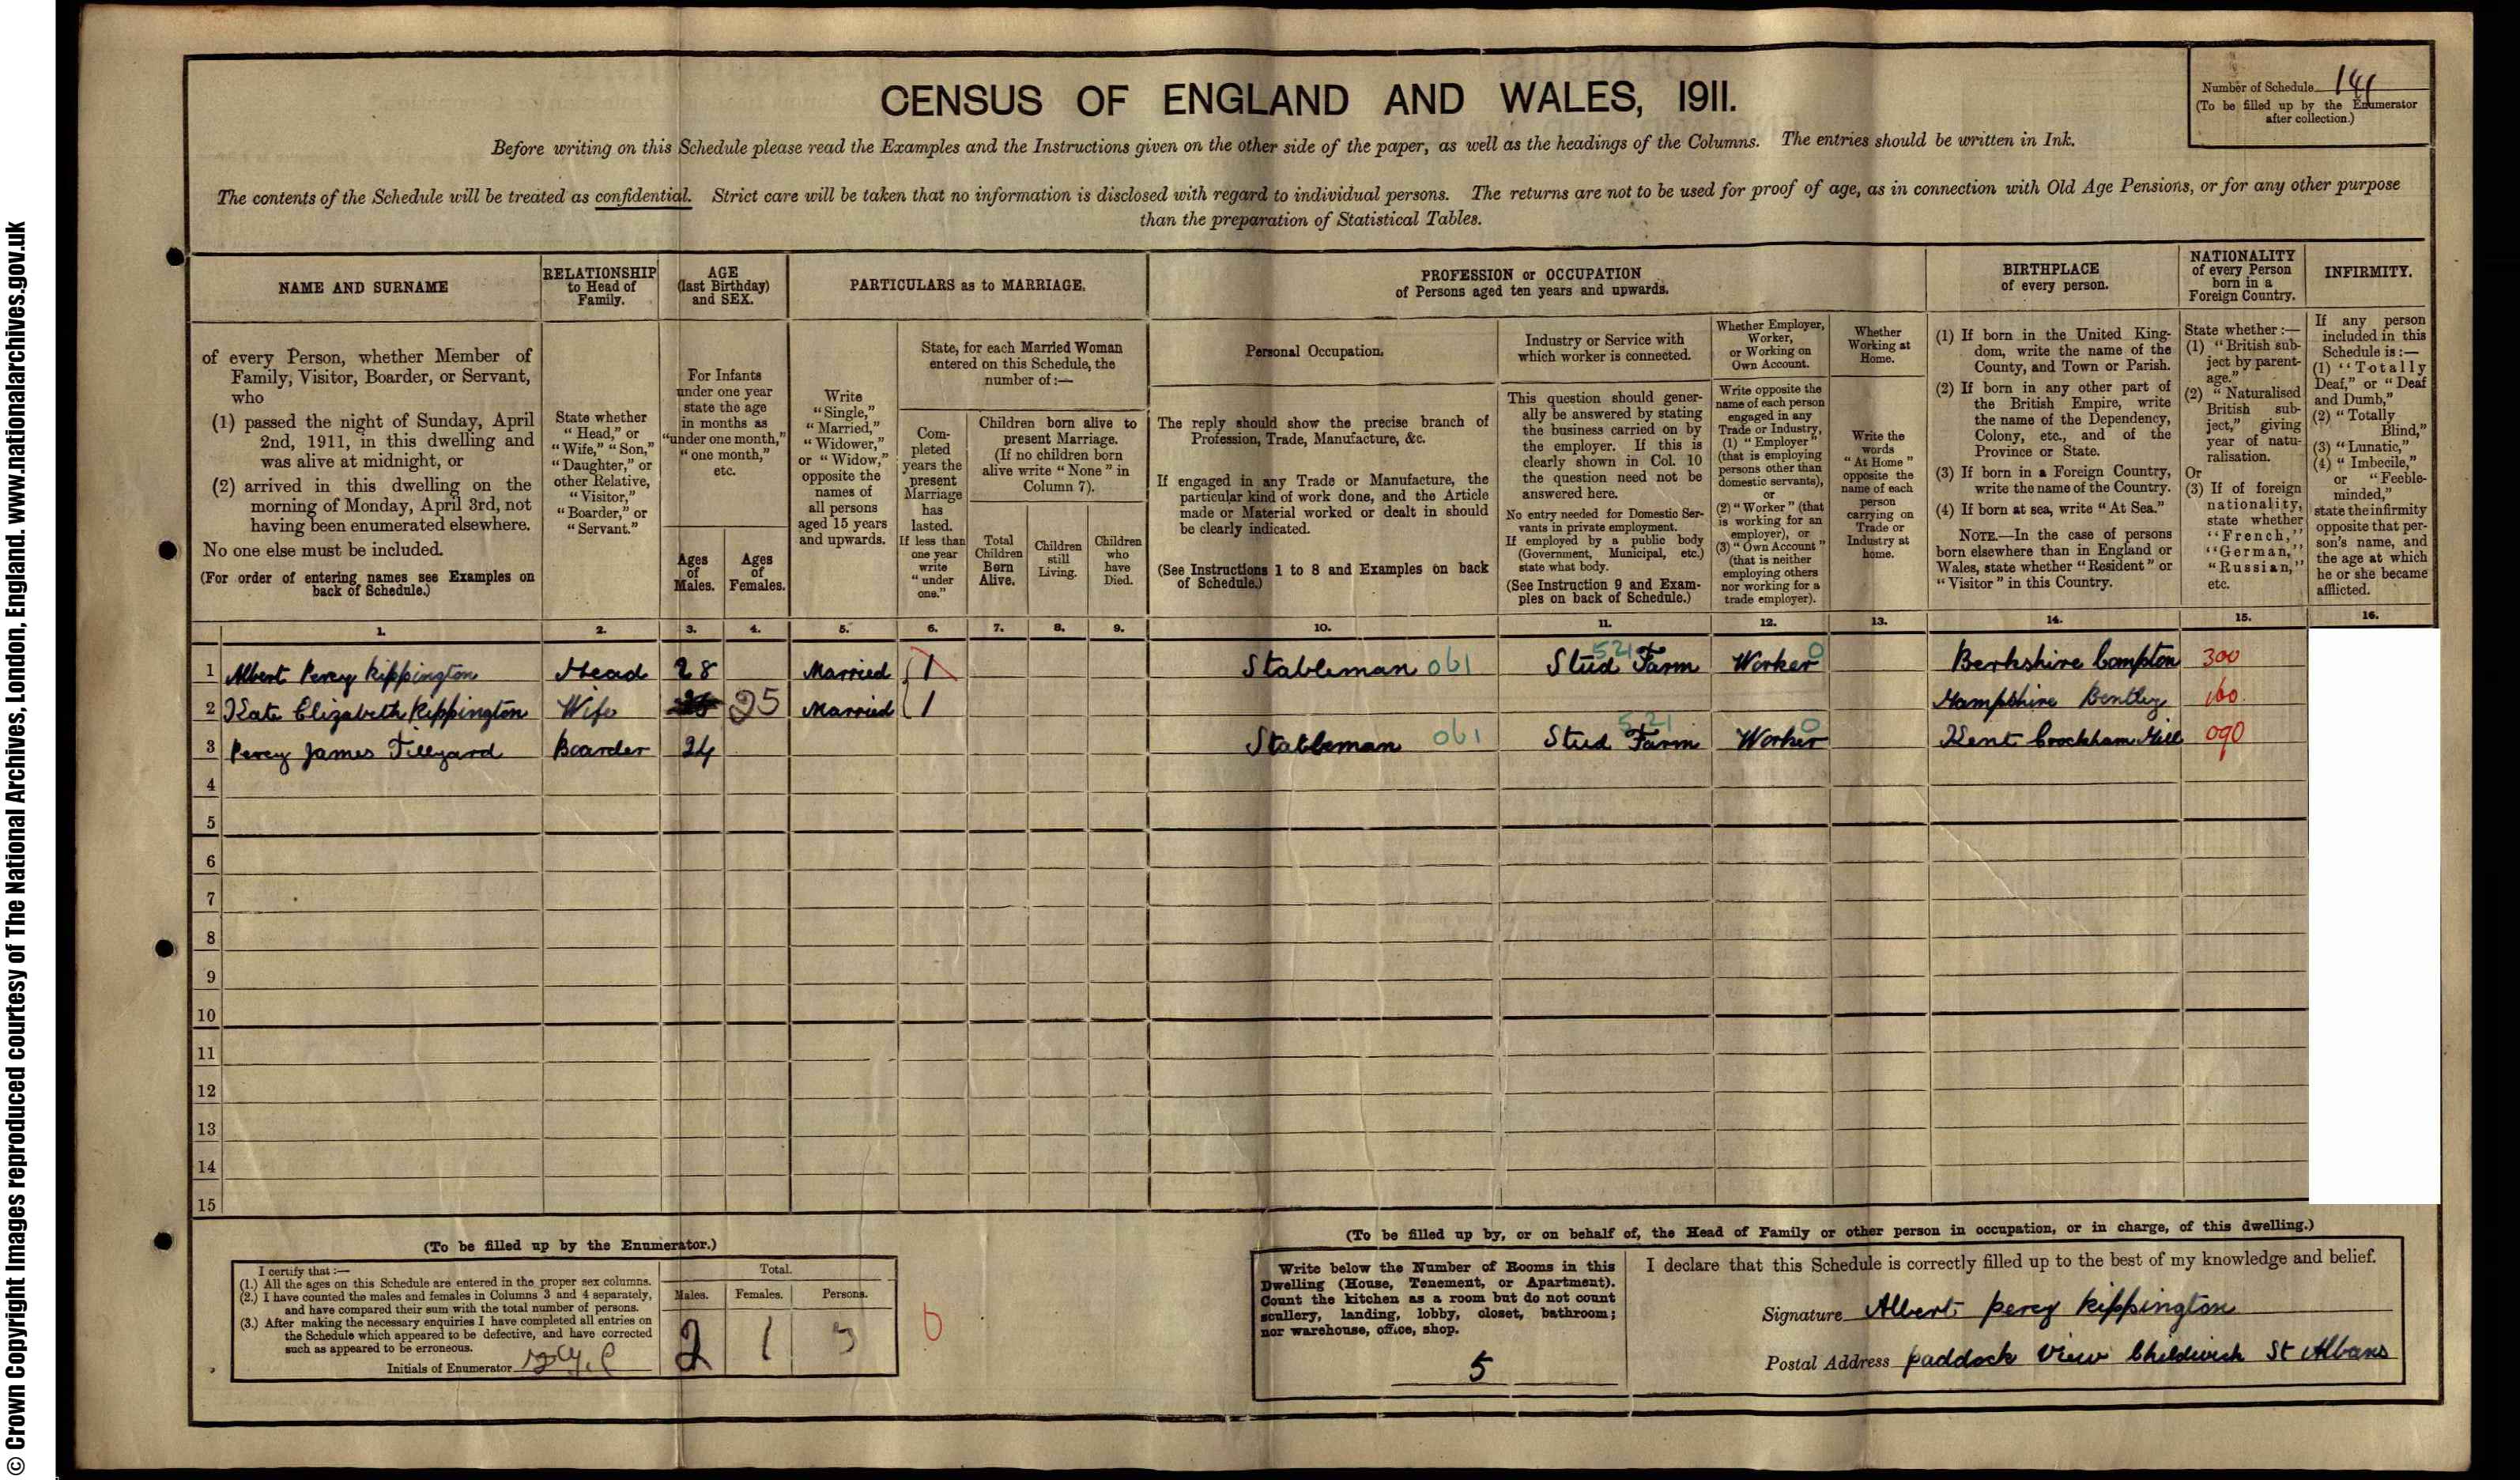 © Crown Copyright Images reproduced courtesy of The National Archives, London, England. www.nationalarchives.gov.uk
CENSUS OF ENGLAND AND WALES, 1911.
Number of Schedule
(To be filled up by the Enumerator
after collection.)
Before writing on this Schedule please read the Examples and the Instructions given on the other side of the paper, as well as the headings of the Columns. The entries should be written in Ink.
The contents of the Schedule will be treated as confidential. Strict care will be taken that no information is disclosed with regard to individual persons. The returns are not to be used for proof of age, as in connection with Old Age Pensions, or for any other purpose
than the preparation of Statistical Tables.
NAME AND SURNAME
of every Person, whether Member of
Family, Visitor, Boarder, or Servant,
who
(1) passed the night of Sunday, April
2nd, 1911, in this dwelling and
was alive at midnight, or
(2) arrived in this dwelling on the
morning of Monday, April 3rd, not
having been enumerated elsewhere.
No one else must be included.
(For order of entering names see Examples on
back of Schedule.)
RELATIONSHIP
to Head of
Family.
State whether
"Head," or
"Wife," "Son,"
"Daughter," or
other Relative,
"Visitor,"
"Boarder," or
"Servant."
AGE
(last Birthday)
and SEX.
For Infants
under one year
state the age
in months as
"under one month,"
"one month,"
etc.
Ages
of
Males.
Ages
of
Females.
PARTICULARS as to MARRIAGE.
Write
"Single,"
"Married,"
"Widower,"
or "Widow,"
opposite the
names of
all persons
aged 15 years
and upwards.
State, for each Married Woman
entered on this Schedule, the
number of:—
Com-
pleted
years the
present
Marriage
has
lasted.
If less than
one year
write
"under
one."
Children born alive to
present Marriage.
(If no children born
alive write "None" in
Column 7).
Total
Children
Born
Alive.
Children
still
Living.
Children
who
have
Died.
PROFESSION or OCCUPATION
of Persons aged ten years and upwards.
Personal Occupation.
The reply should show the precise branch of
Profession, Trade, Manufacture, &c.
If engaged in any Trade or Manufacture, the
particular kind of work done, and the Article
made or Material worked or dealt in should
be clearly indicated.
(See Instructions 1 to 8 and Examples on back
of Schedule.)
Industry or Service with
which worker is connected.
This question should gener-
ally be answered by stating
the business carried on by
the employer. If this is
clearly shown in Col. 10
the question need not be
answered here.
No entry needed for Domestic Ser-
vants in private employment.
If employed by a public body
(Government, Municipal, etc.)
state what body.
(See Instruction 9 and Exam-
ples on back of Schedule.)
Whether Employer,
Worker,
or Working on
Own Account.
Write opposite the
name of each person
engaged in any
Trade or Industry,
(1) "Employer"
(that is employing
persons other than
domestic servants),
or
(2) "Worker" (that
is working for an
employer), or
(3) "Own Account"
(that is neither
employing others
nor working for a
trade employer).
Whether
Working at
Home.
Write the
words
"At Home"
opposite the
name of each
person
carrying on
Trade or
Industry at
home.
BIRTHPLACE
of every person.
(1) If born in the United King-
dom, write the name of the
County, and Town or Parish.
(2) If born in any other part of
the British Empire, write
the name of the Dependency,
Colony, etc., and of the
Province or State.
(3) If born in a Foreign Country,
write the name of the Country.
(4) If born at sea, write "At Sea."
NOTE.—In the case of persons
born elsewhere than in England or
Wales, state whether "Resident" or
"Visitor" in this Country.
NATIONALITY
of every Person
born in a
Foreign Country.
State whether:—
(1) "British sub-
ject by parent-
age."
(2) "Naturalised
British sub-
ject," giving
year of natu-
ralisation.
Or
(3) If of foreign
nationality,
state whether
"French,"
"German,"
"Russian,"
etc.
INFIRMITY.
If any person
included in this
Schedule is:—
(1) "Totally
Deaf," or "Deaf
and Dumb,"
(2) "Totally
Blind,"
(3) "Lunatic,"
(4) "Imbecile,"
or "Feeble-
minded,"
state the infirmity
opposite that per-
son's name, and
the age at which
he or she became
afflicted.
1. 2. 3. 4. 5. 6. 7. 8. 9. 10. 11. 12. 13. 14. 15. 16.
1 Albert Percy Kippington Head 28 Married 1 Stableman 061 Stud Farm 521 Worker 0 Berkshire Compton 300
2 Kate Elizabeth Kippington Wife 25 Married 1 Hampshire Bentley 160
3 Percy James Tillyard Boarder 24 Stableman 061 Stud Farm 521 Worker 0 Kent Crockham Hill 090
4
5
6
7
8
9
10
11
12
13
14
15
(To be filled up by the Enumerator.)
I certify that:—
(1.) All the ages on this Schedule are entered in the proper sex columns.
(2.) I have counted the males and females in Columns 3 and 4 separately,
and have compared their sum with the total number of persons.
(3.) After making the necessary enquiries I have completed all entries on
the Schedule which appeared to be defective, and have corrected
such as appeared to be erroneous.
Initials of Enumerator
Total.
Males. Females. Persons.
2 1 3
0
(To be filled up by, or on behalf of, the Head of Family or other person in occupation, or in charge, of this dwelling.)
Write below the Number of Rooms in this
Dwelling (House, Tenement, or Apartment).
Count the kitchen as a room but do not count
scullery, landing, lobby, closet, bathroom;
nor warehouse, office, shop.
5
I declare that this Schedule is correctly filled up to the best of my knowledge and belief.
Signature Albert percy Kippington
Postal Address paddock View Childwich St Albans